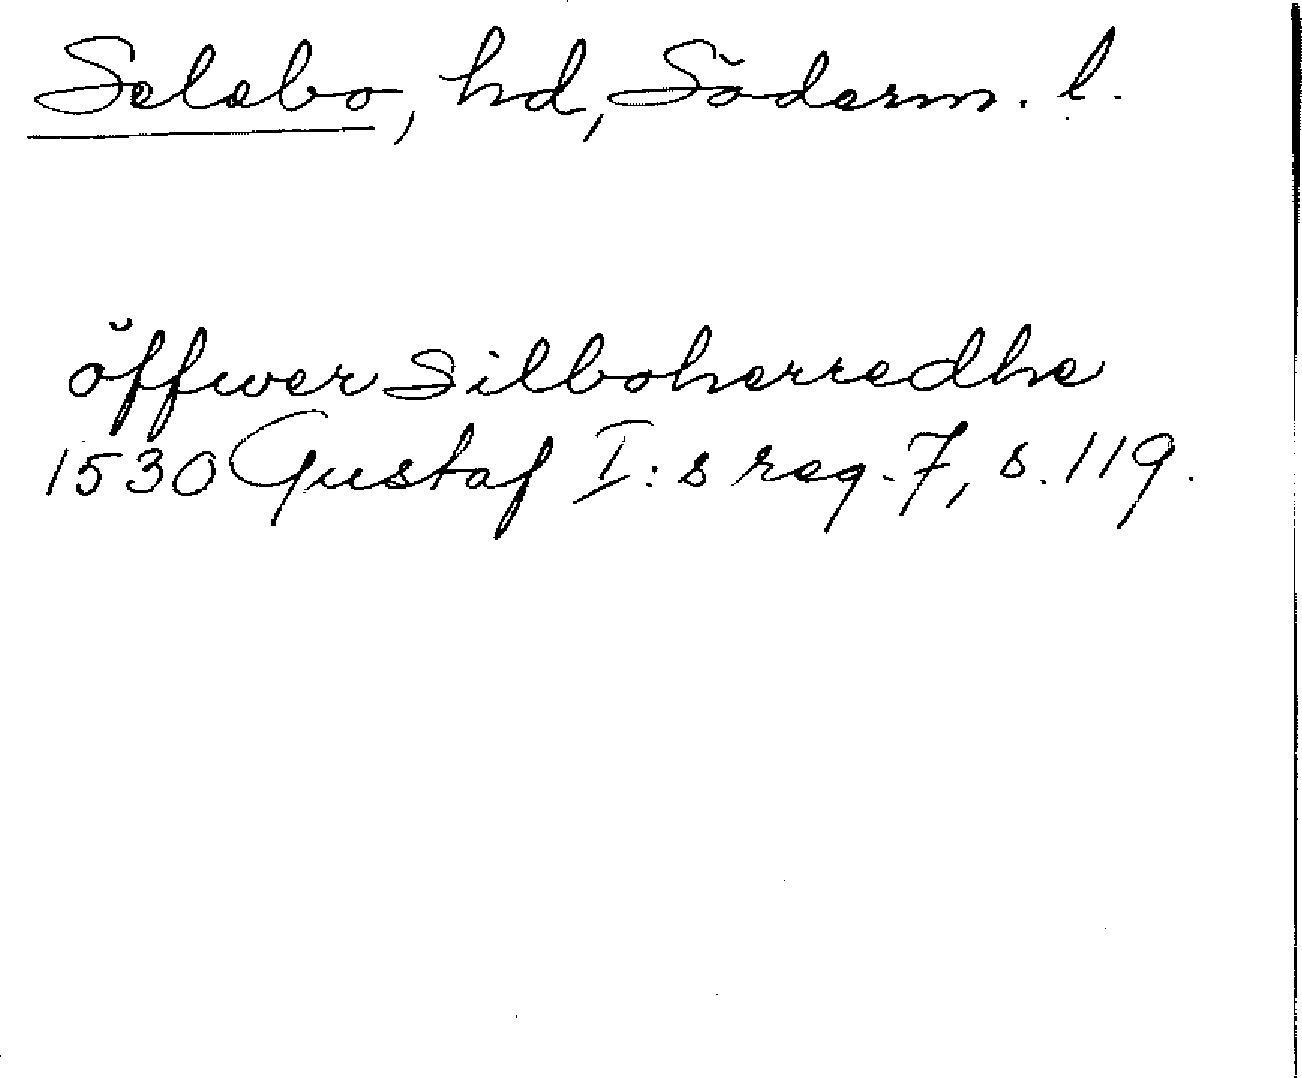 Selebo, hd, Söderm. l.
öffwer Silboherredhe
1530 Gustaf I:s reg. 7, s. 119.